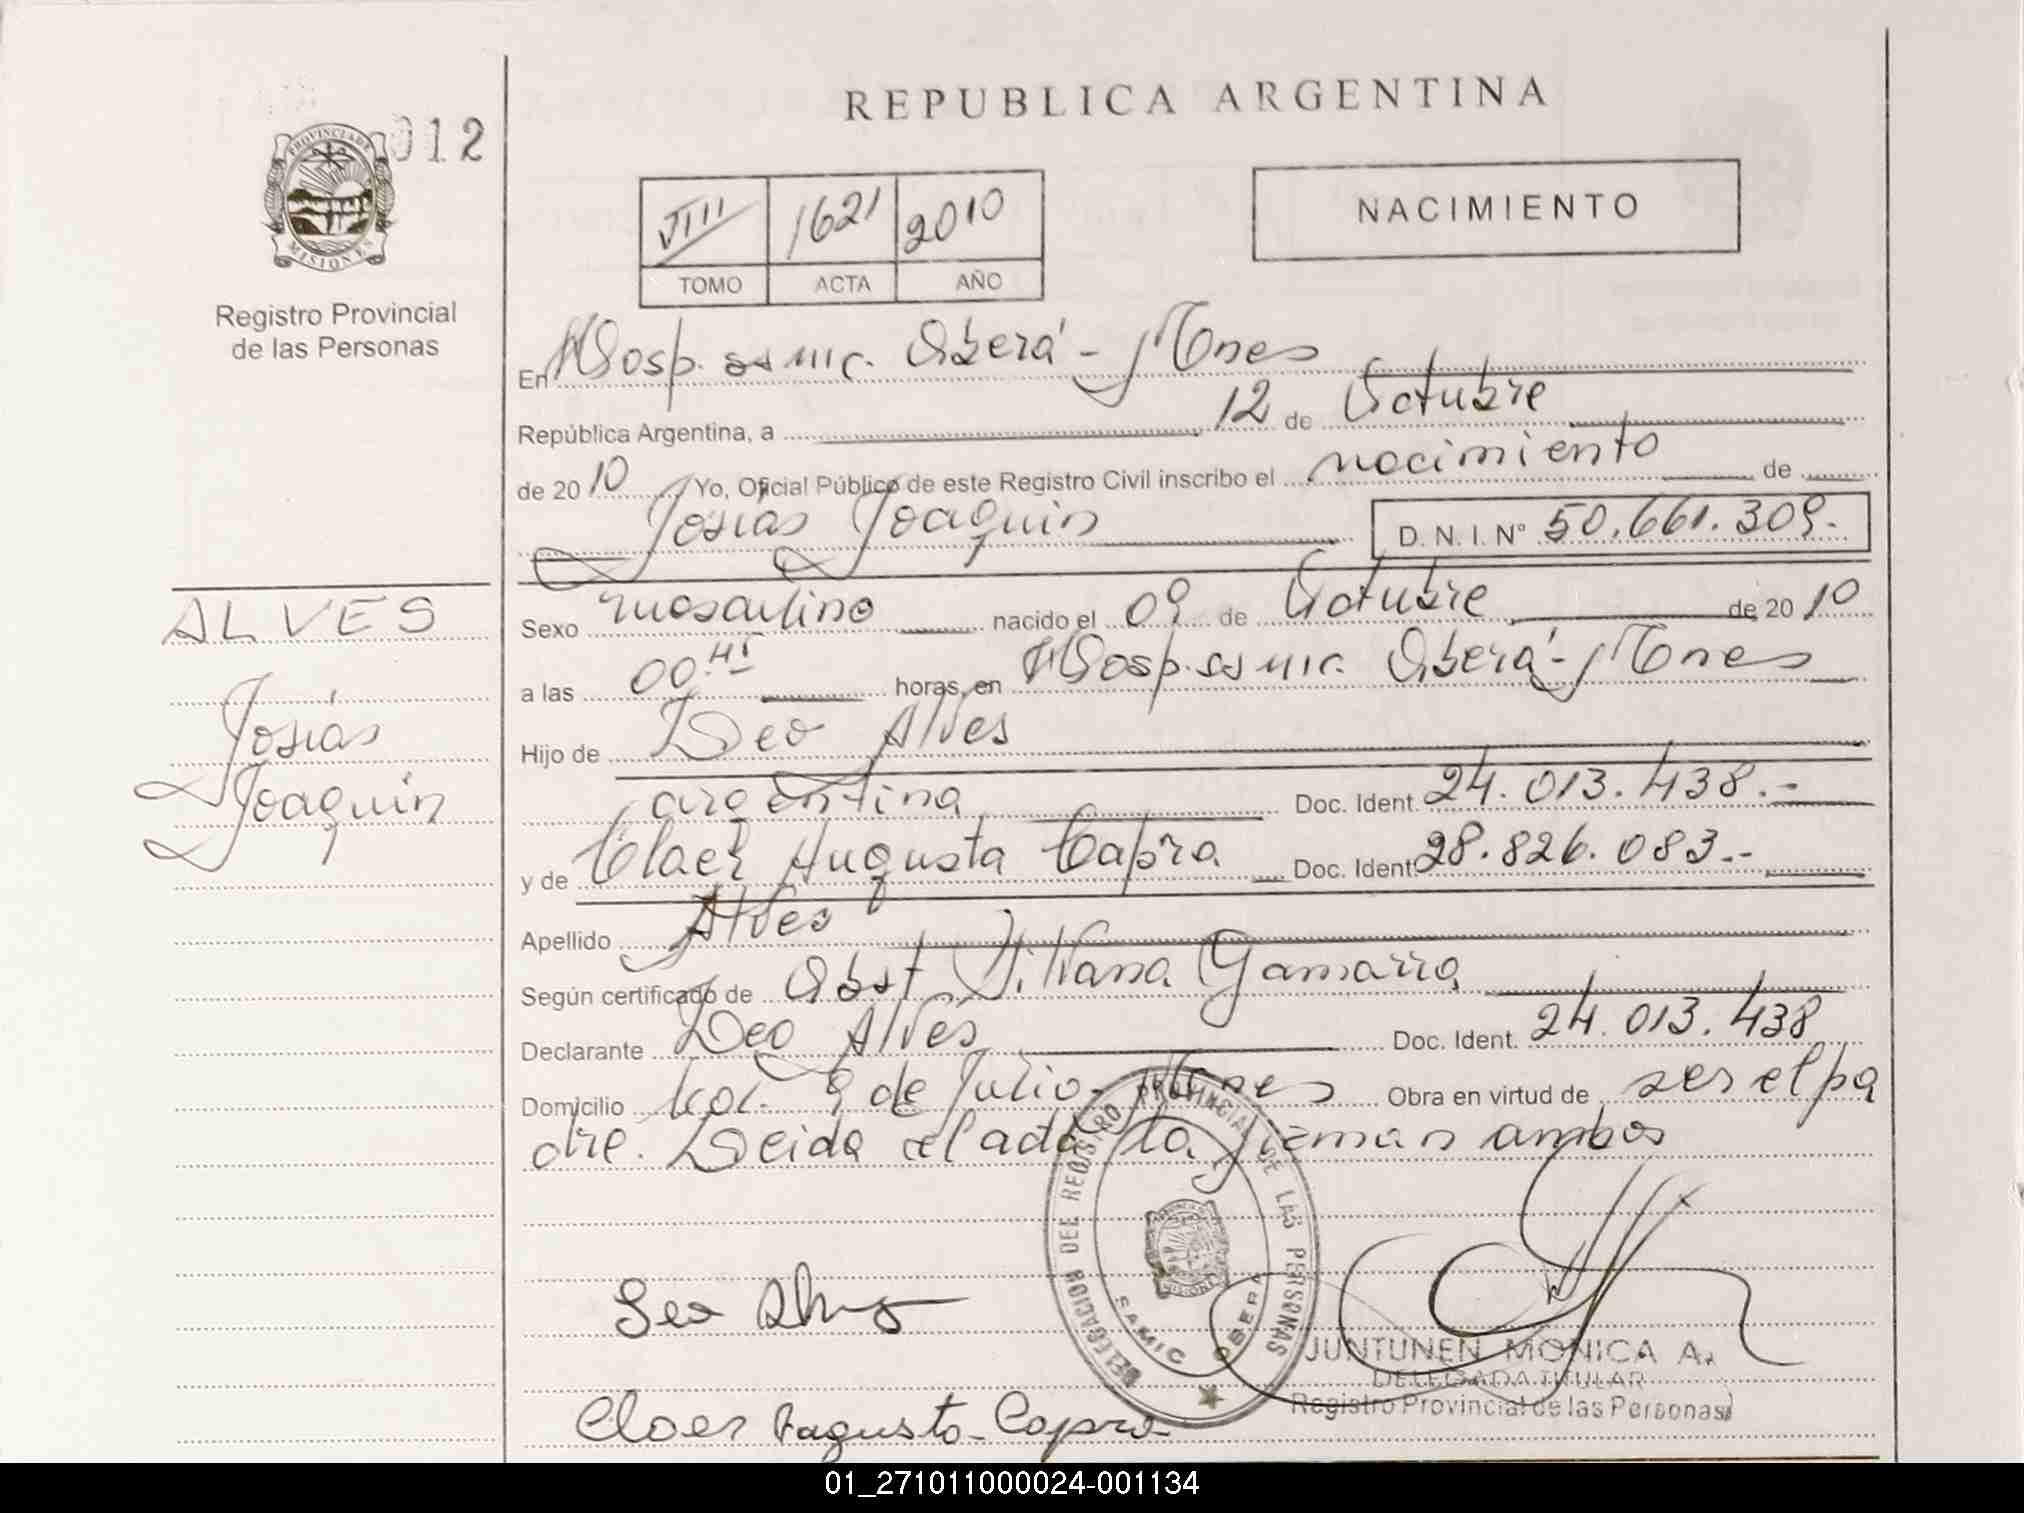 REPUBLICA ARGENTINA
012
PROVINCIA DE MISIONES
Registro Provincial
de las Personas
VIII 1621 2010
TOMO ACTA AÑO
NACIMIENTO
En Hosp. ssmic. Oberá - Mnes
República Argentina, a 12 de Octubre
de 2010 Yo, Oficial Público de este Registro Civil inscribo el nacimiento de
Josías Joaquin D. N. I. Nº 50.661.309.
ALVES
Josías
Joaquin
Sexo masculino nacido el 09 de Octubre de 2010
a las 00.45 horas, en Hosp. ssmic. Oberá - Mnes
Hijo de Leo Alves
argentina Doc. Ident. 24.013.438.-
y de Claer Augusta Capra Doc. Ident. 28.826.083.-
Apellido Alves
Según certificado de Obst Viviana Gamarra
Declarante Leo Alves Doc. Ident. 24.013.438
Domicilio Kol. 9 de Julio - Mnes Obra en virtud de ser el pa
dre. Leida el acta, firman ambos
Leo Alves
DELEGACION DEL REGISTRO PROVINCIAL DE LAS PERSONAS
SAMIC OBERA
JUNTUNEN MONICA A.
DELEGADA TITULAR
Registro Provincial de las Personas
Claer Augusta Capra
01_271011000024-001134